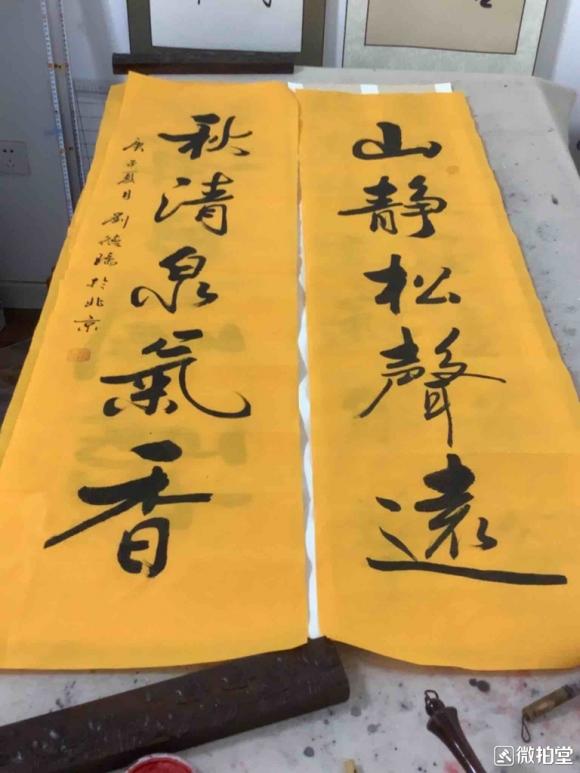 山静松聲遠
秋清泉氣香
庚子夏月劉德陽於北京
微拍堂